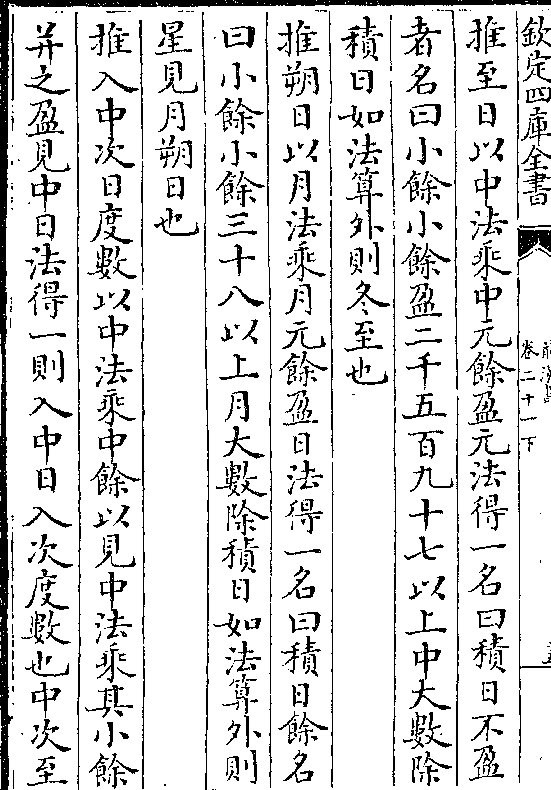 欽定四庫全書
卷二十一下
推至日以中法乘中元餘盈元法得一名曰積日不盈
者名曰小餘小餘盈二千五百九十七以上中大數除
積日如法算外則冬至也
推朔日以月法乘月元餘盈日法得一名曰積日餘名
曰小餘小餘三十八以上月大數除積日如法算外則
星見月朔日也
推入中次日度數以中法乘中餘以見中法乘其小餘
并之盈見中日法得一則入中日入次度數也中次至